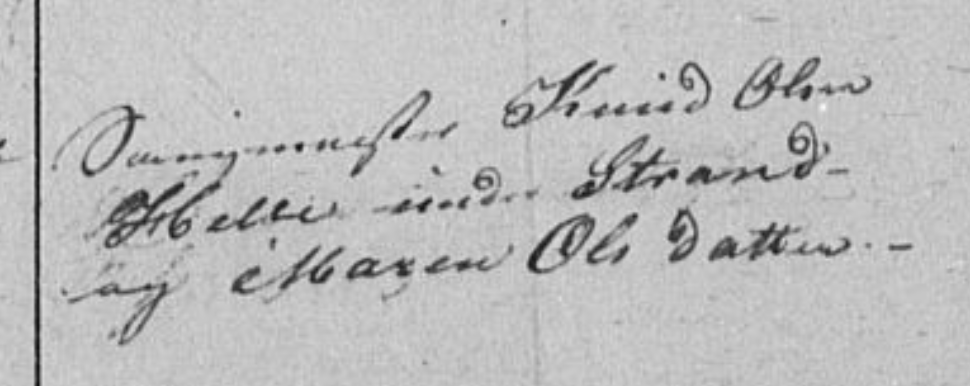 Knud Olsen
Helle under Strand-
og Maren Ols Datter. -